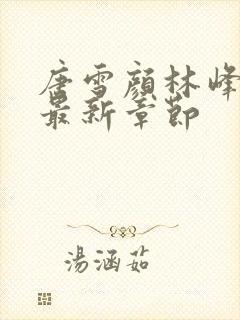 唐雪顏林峰
最新章節
湯涵茹